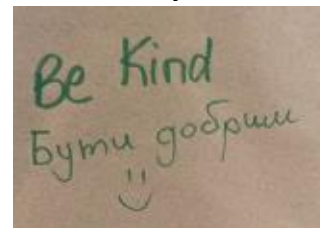 Be Kind
Бути добрим